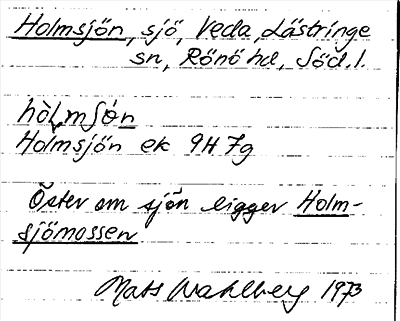 Holmsjön, sjö, Veda, Lästringe
sn, Rönö hd, Söd. l.
hòlmʃö́n
Holmsjön ek 9H 7g
Öster om sjön ligger Holm-
sjömossen
Mats Wahlberg 1973